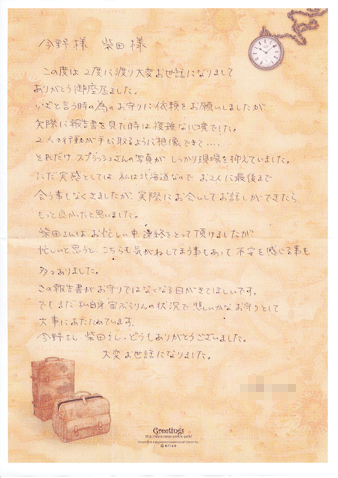 今野様 柴田様
この度は2度に渡り大変お世話になりまして
ありがとう御座居ました。
いざと言う時の為のお守りに依頼をお願いしましたが
実際に報告書を見た時は複雑な心境でした。
2人の行動が手に取るように想像できて....
それだけ、スプラッシュさんの写真が しっかり現場を抑えていました。
ただ実感としては 私は北海道なので お2人に最後まで
会う事もなくきましたが、実際にお会いしてお話しができたら
もっと良かったと思いました。
柴田さんはお忙しい中 連絡をとって頂けましたが
忙しいと思うと、こちらも気がねしてしまう事もあって 不安を感じる事も
多々ありました。
この報告書がお守りではなくなる日がきてほしいです。
でもまだ 宙ぶらりんの状況で 悲しいかな お守りとして
大事にあたためています。
今野さん 柴田さん どうもありがとうございました。
大変お世話になりました。
Greetings